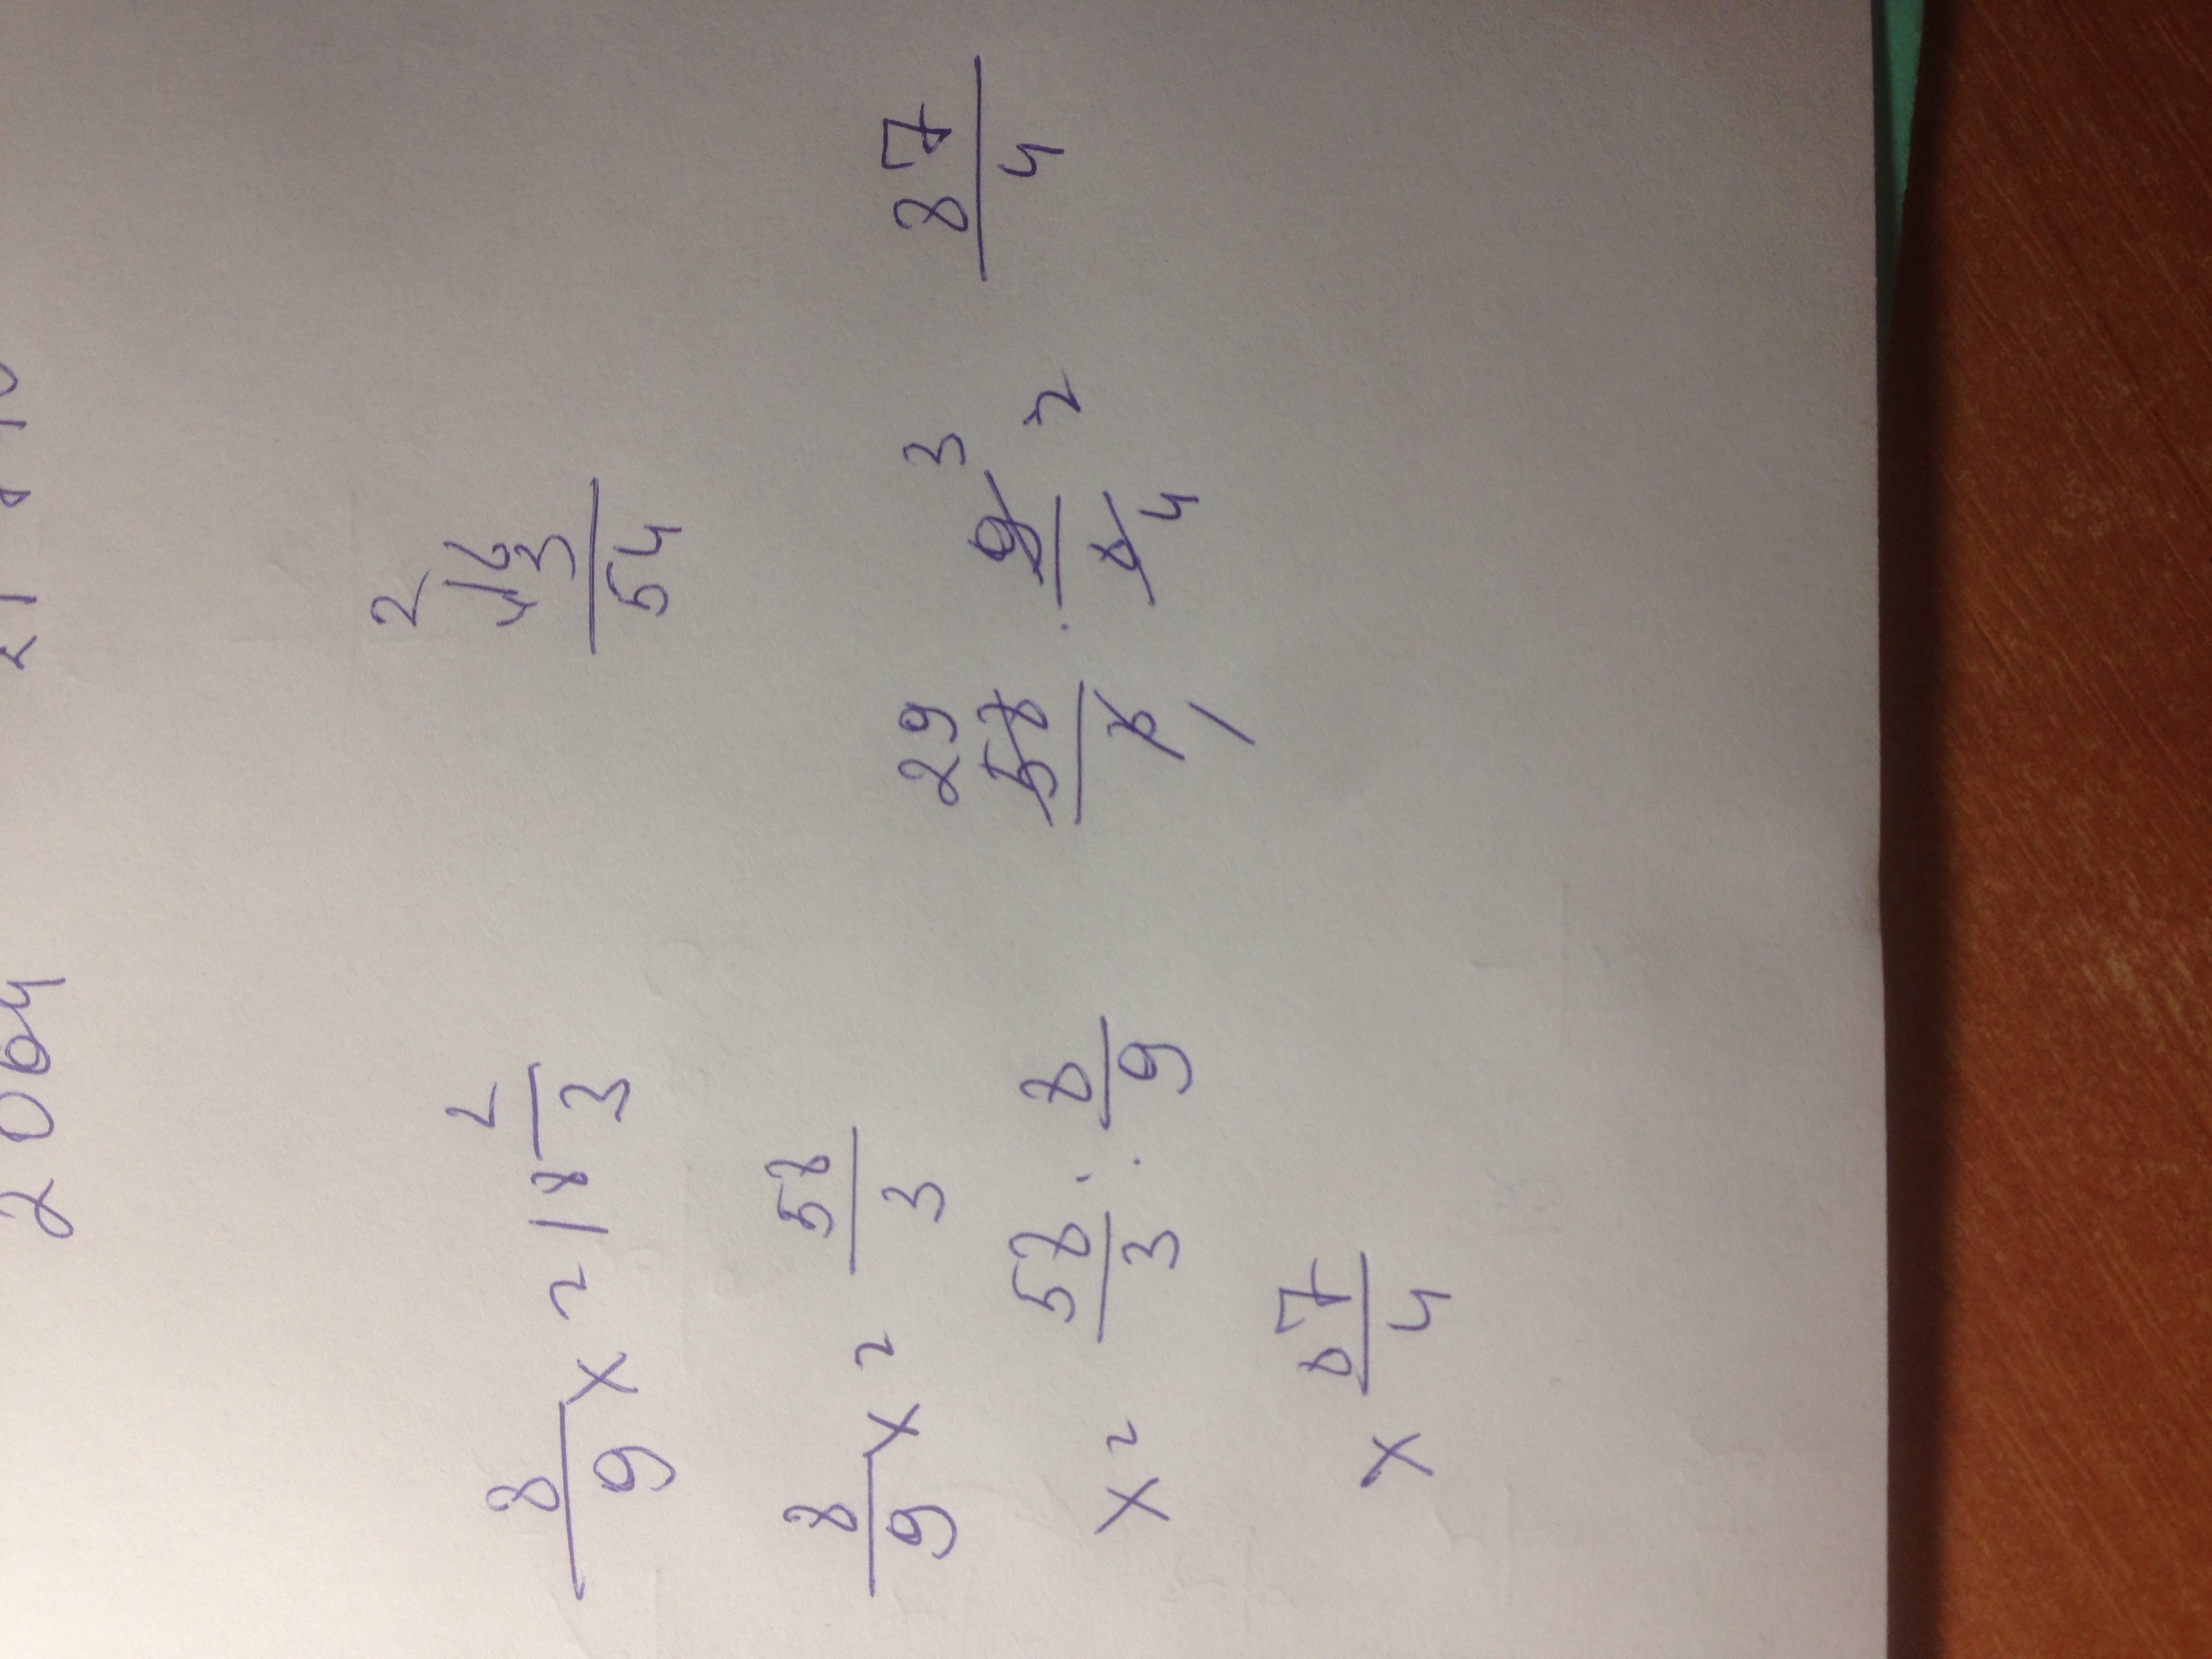 2064
8/9 x = 18 2/3
8/9 x = 58/3
x = 58/3 : 8/9
x 87/4
2
3
54
29 3
58/3 · 9/8 = 87/4
1 4